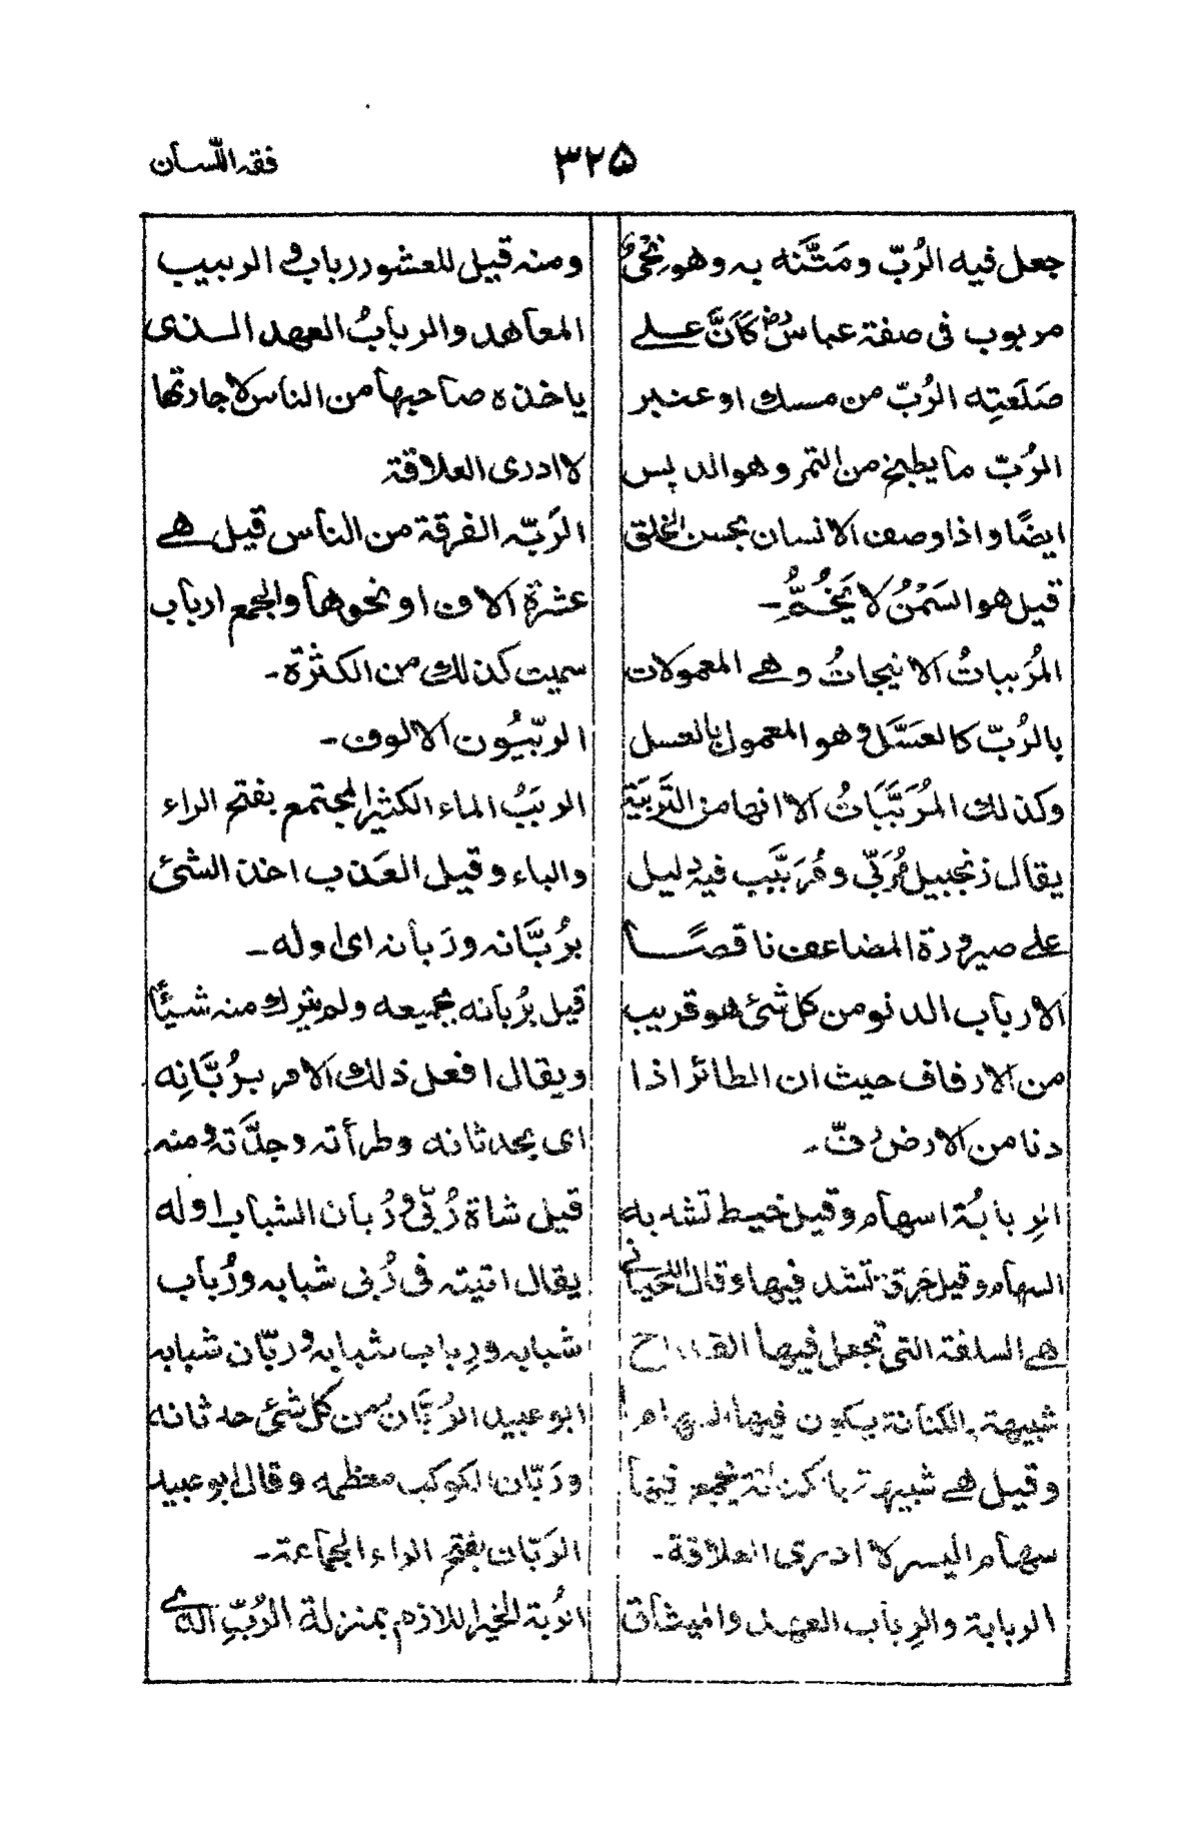 فقه اللسان
٣٢٥
جعل فيه الرُبّ ومَتَّنَه به وهو نِحْىٌ
مربوب فى صفة عباسؓ كَأَنَّ على
صَلَعَتِه الرُبّ من مسك او عنبر
الرُبّ ما يطبخ من التمر وهو الدبس
ايضًا واذا وصف الانسان بحسن الخلق
قيل هو السَمْنُ لا يَخُمُّ۔
المُرَبباتُ الانبجاتُ وهى المعمولات
بالرُبّ كالعَسَّل وهو المعمول بالعسل
وكذلك المُرَبَّيَاتُ الا انها من التَّربيَة
يقال زنجبيل مُرَبّى ومُرَبَّب فيه دليل
على صيرورة المضاعف ناقصًا
الارباب الدنو من كل شئ هو قريب
من الارفاف حيث ان الطائر اذا
دنا من الارض رفّ۔
الرِبابُة اسهام وقيل خيط تشد به
السهام وقيل خرقة تشد فيها وقال اللحيانى
هى السلفة التى تجعل فيها القداح
شبيهة بالكنانة يكون فيها السهام
وقيل هى شبيهة بالكنانة يجمع فيها
سهام اليسر لا ادرى العلاقة۔
الربابة والرِباب العهد والميثاق
ومنه قيل للعشور رباب و الربيب
المعاهد والربابُ العهد الذى
ياخذه صاحبها من الناس لاجارتها
لا ادرى العلاقة
الرَبّه الفرقة من الناس قيل هى
عشرة الاف او نحوها والجمع ارباب
سميت كذلك من الكثرة۔
الرِبّيُون الالوف۔
الربَبُ الماء الكثير المجتمع بفتح الراء
والباء وقيل العَذب اخذ الشئ
برُبَّانه ورَبانه اى اوله۔
قيل برُبانه بجميعه ولم يترك منه شيأً
ويقال افعل ذلك الامر برُبَّانِه
اى بحدثانه وطرأته وجدَّته ومنه
قيل شاة رُبّى ورُبان الشباب اوله
يقال اتيته فى رُبى شبابه ورُباب
شبابه ورِباب شبابه وربّان شبابه
ابو عبيد الرُبَّان من كل شئ حدثانه
ورَبّان الكوكب معظمه وقال ابو عبيد
الرَبّان بفتح الراء الجماعة۔
الرُبة الخير اللازم بمنزلة الرُبِّ الذى